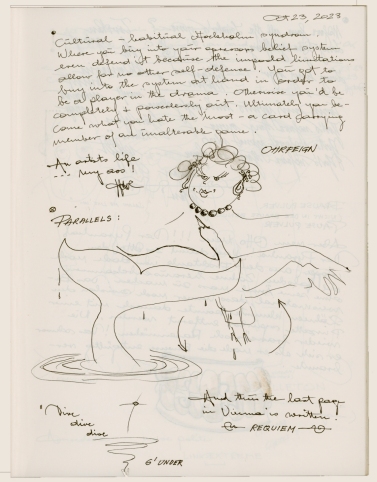 Oct 23, 2023
Cultural – habitual Stockholm syndrom.
Where you buy into your oppressors belief system
even defend it because the imposed limitations
allow for no other self-defense. You got to
buy into the system at hand in order to
be a player in the drama. Otherwise you'd be
completely & powerlessly out. Ultimately you be-
come what you hate the most – a card carrying
member of an inalterable game.
OHRFEIGN
An artists life
--- my ass!
PARALLELS:
"Dive
dive
dive
6' UNDER
And thus the last page
in Vienna is written.
REQUIEM